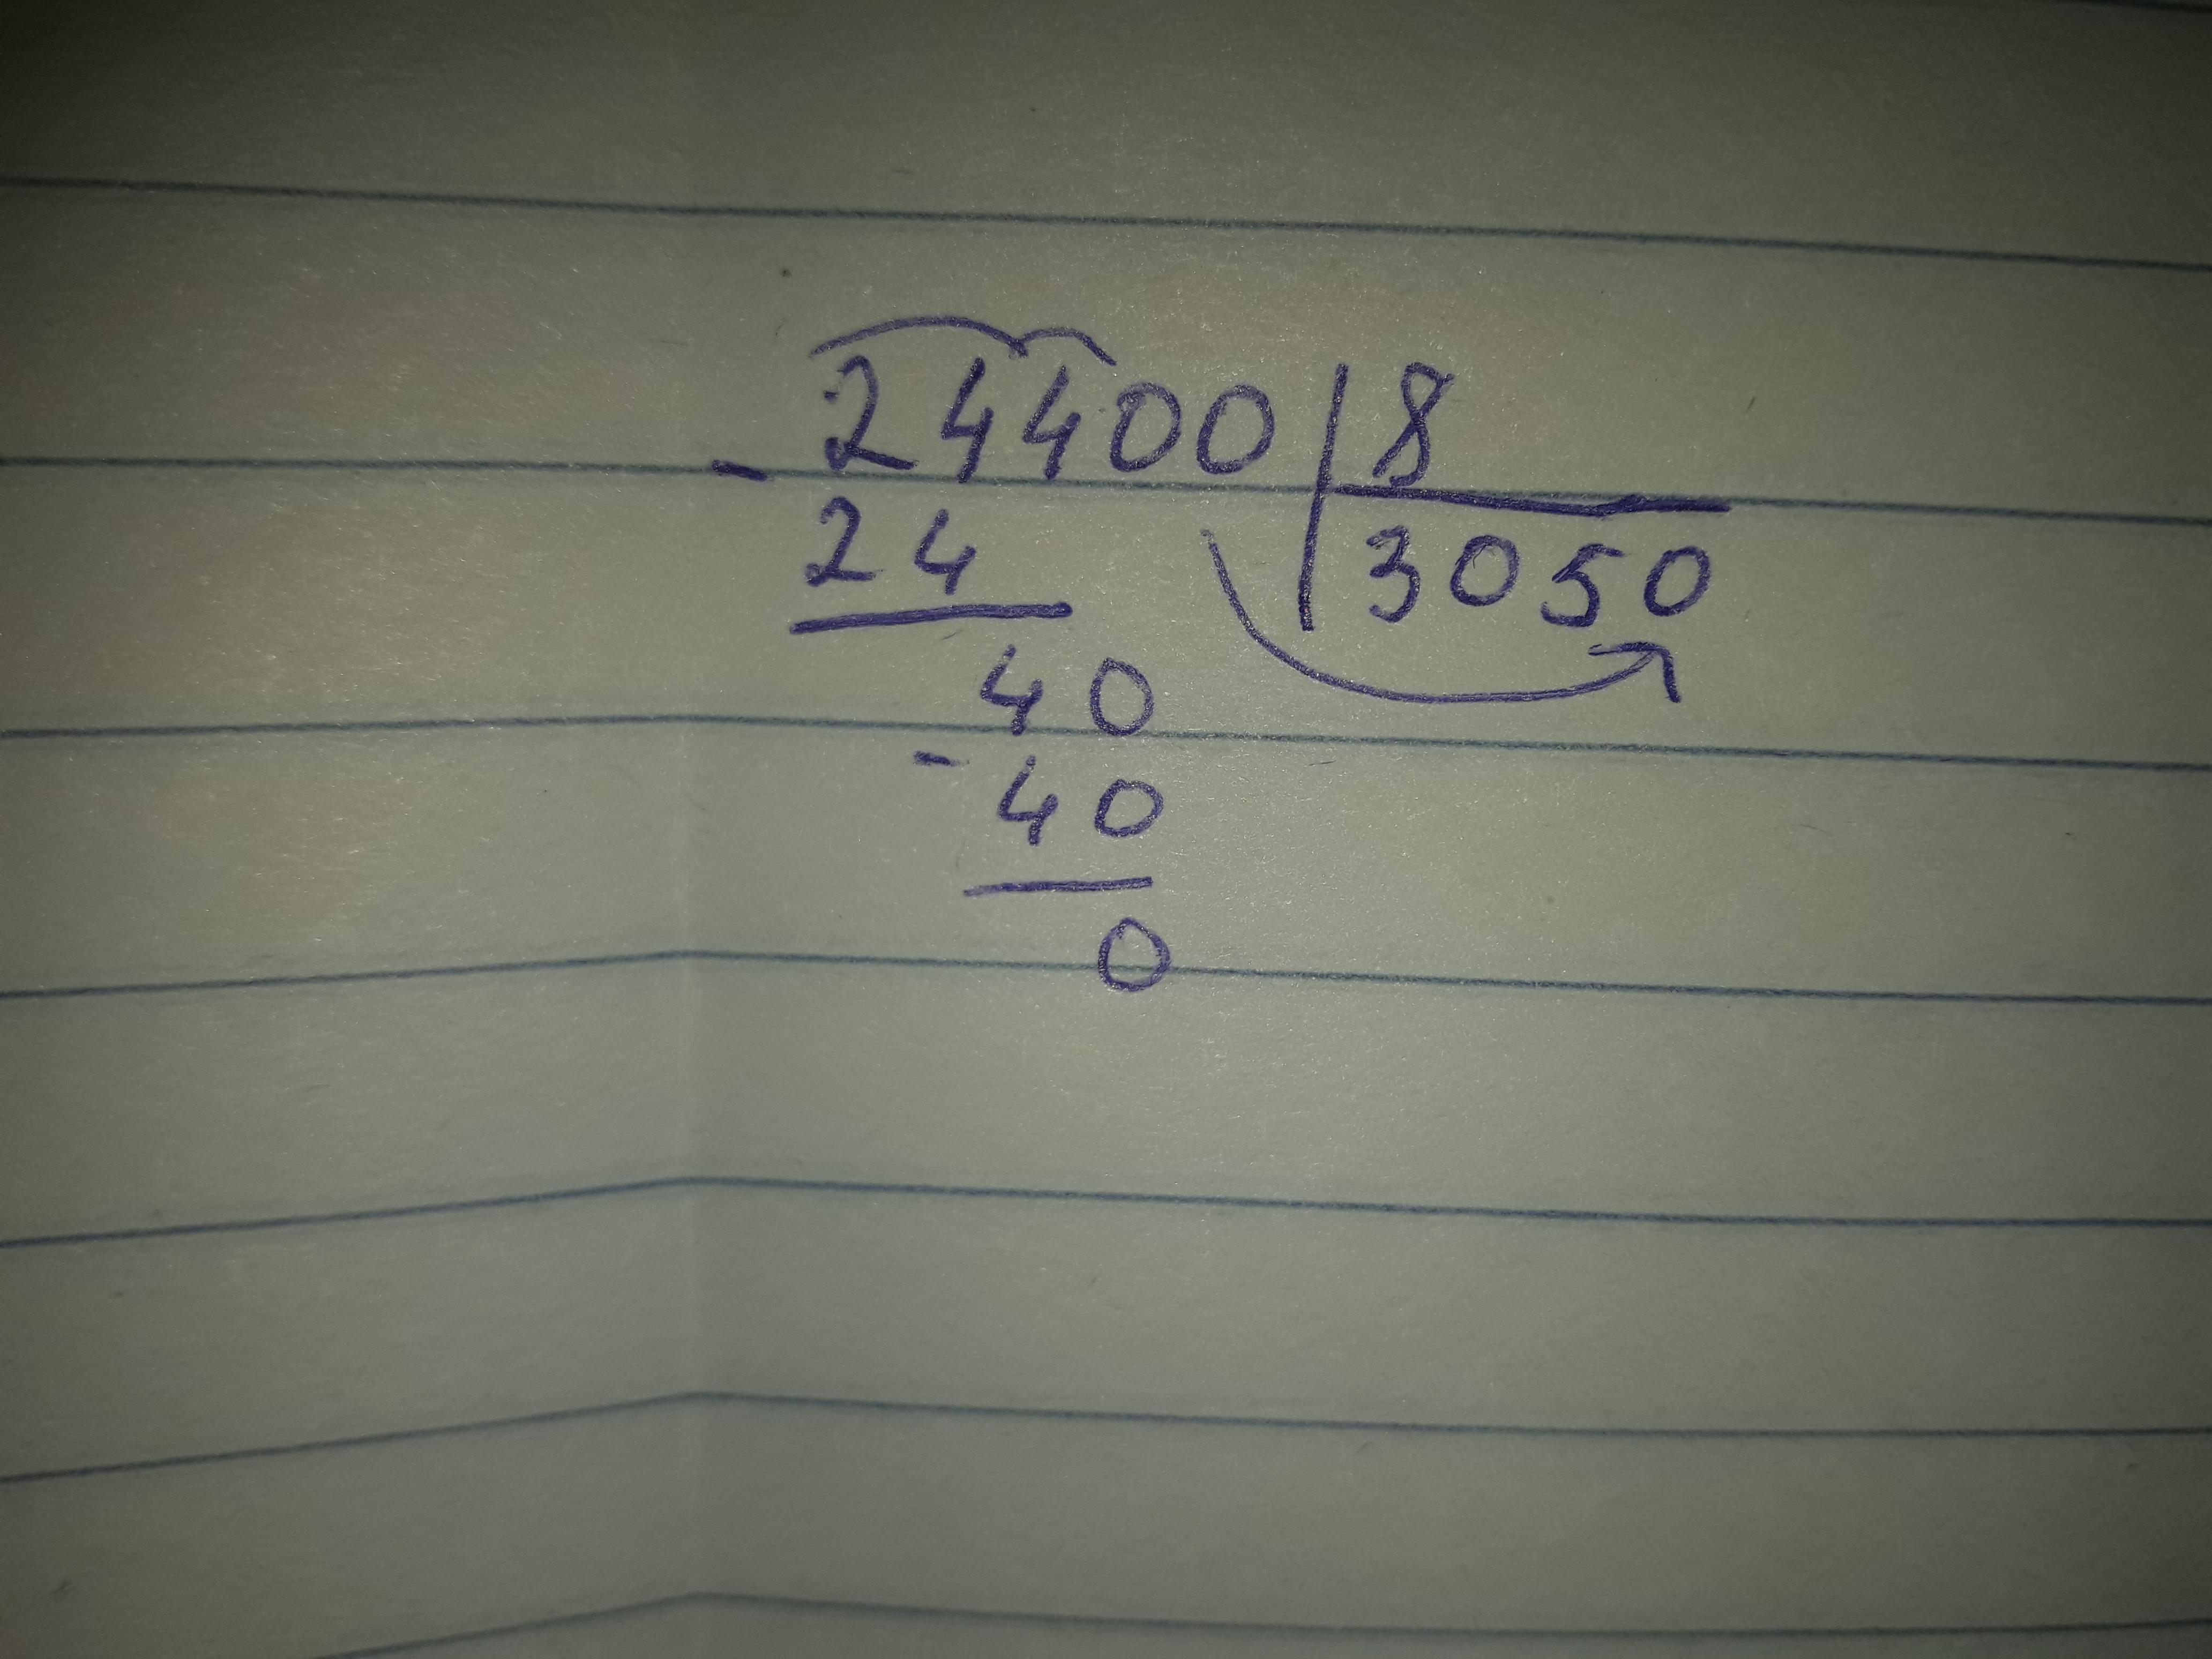 24400 | 8
- 24 3050
40
- 40
0